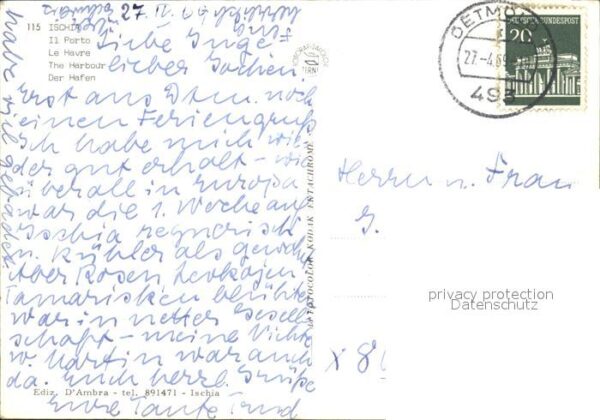 115 ISCHIA
Il Porto
Le Havre
The Harbour
Der Hafen
27. IV. 69
Liebe Inge
lieber Jochen
Erst aus Detm. noch
einen Feriengruß
Ich habe mich wie-
der gut erholt - wie
überall in Europa
war die 1. Woche auf
Ischia regnerisch
u. kühler als gewohnt
Aber Rosen Levkojen
Tamarisken blühten
war in netter Gesell-
schaft - meine Nichte
w. Martin war auch
da. Euch herzl. Grüße
Eure Tante Trud
habe viel gebadet
Ediz. D'Ambra - tel. 891471 - Ischia
FOTOCOLOR KODAK EKTACHROME
DETMOLD
27.-4.69
493
DEUTSCHE BUNDESPOST
20
Herrn u. Frau
J.
privacy protection
Datenschutz